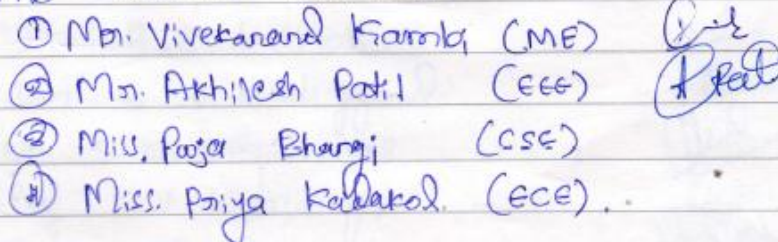 ① Mr. Vivekanand Kambi (ME)
② Mr. Akhilesh Patil (EEE)
③ Miss. Pooja Bhangi (CSE)
④ Miss. Priya Kadakol. (ECE).